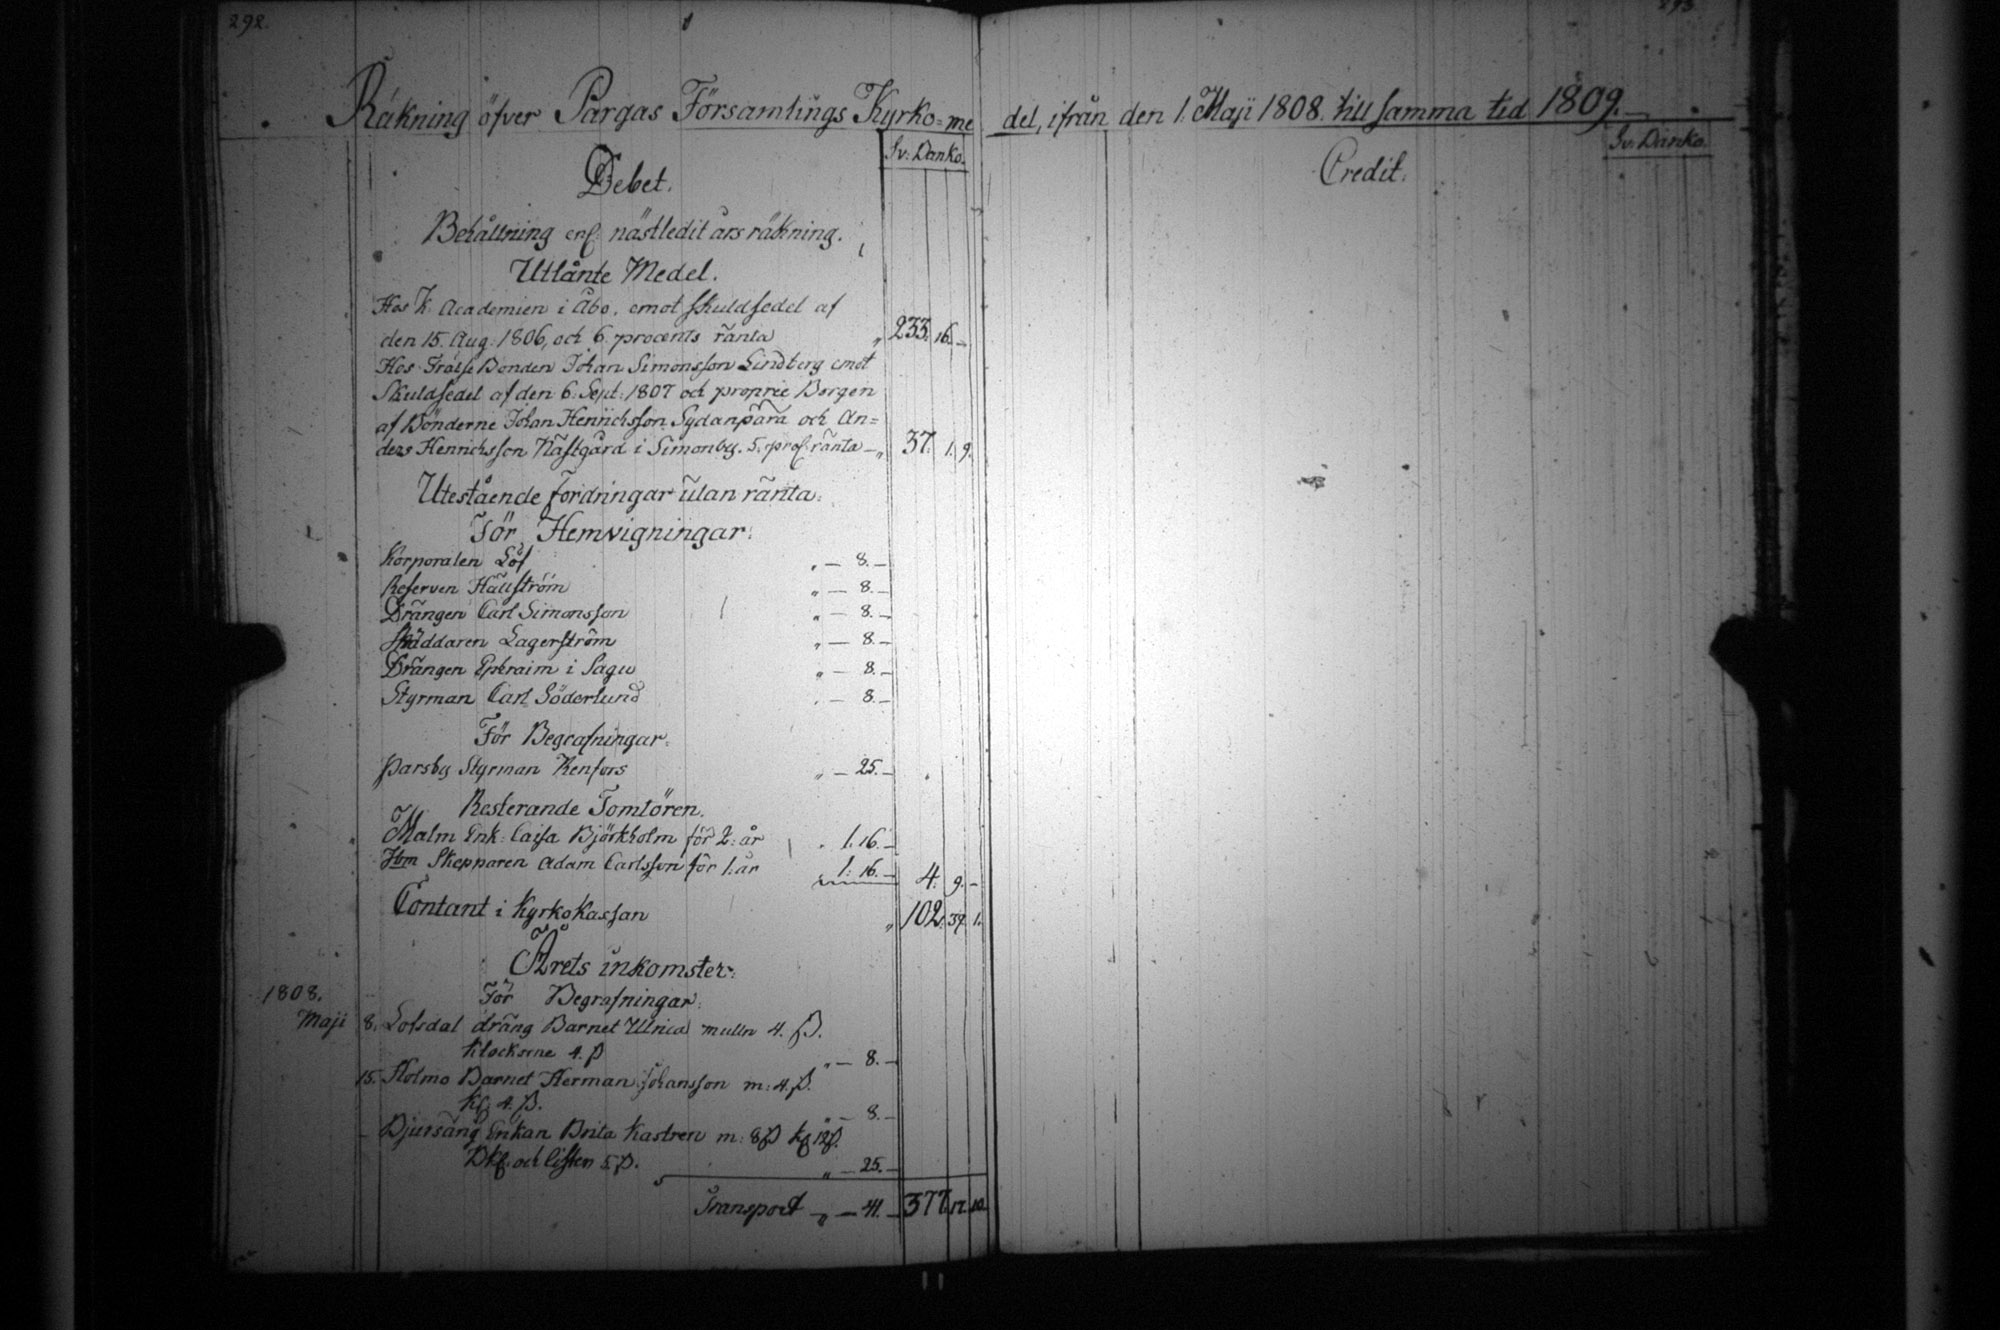 292.
293
Räkning öfver Pargas Församlings Kyrko=me del, ifrån den 1. Maji 1808. till samma tid 1809.
Sv: Banko.
Sv: Banko.
Debet.
Credit.
Behållning enl. nästledit års räkning.
Utlånte Medel.
Hos K. Academien i Åbo, emot skuldsedel af
den 15. Aug: 1806, och 6. procents ränta „ 233. 16. –
Hos Frälse Bonden Johan Simonsson Lindberg emot
Skuldsedel af den 6. Sept: 1807 och proprie Borgen
af Bönderne Johan Henrichsson Sydanpärä och An=
ders Henrichsson Nästgård i Simonby. 5. proc: ränta – „ 37. 1. 9.
Utestående fordringar utan ränta.
För Hemvigningar:
Korporalen Löf „ – 8. –
Reserven Hällström „ – 8. –
Drängen Carl Simonsson „ – 8. –
Skräddaren Lagerström „ – 8. –
Drängen Ephraim i Sagu „ – 8. –
Styrman Carl Söderlund „ – 8. –
För Begrafningar.
Parsby Styrman Renfors „ – 25. –
Resterande Tomtören.
Malm Enk: Caisa Björkholm för 2: år „ 1. 16. –
Ibm Skepparen Adam Carlsson för 1: år „ 1: 16. – 4. 9. –
Contant i Kyrko Kassan „ 102. 37. 1.
Årets inkomster:
1808. För Begrafningar.
Maji 8. Lofsdal dräng Barnet Ulrica mulln 4. ß.
Klockorne 4. ß „ – 8. –
15. Holmo Barnet Herman Johansson m: 4. ß.
Kl: 4. ß. „ – 8. –
– Djursäng Enkan Brita Kastren m: 8 ß kl 12 ß.
Bkl. och listen 5. ß. „ – 25. –
Transport „ – 41. – 377. 17. 10.